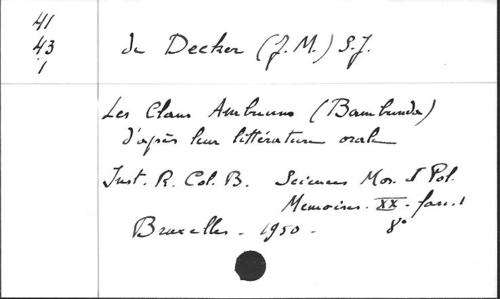 41
43
1
de Decker (J.M.) S.J.
Les Clans Ambuun (Bambunda)
d'après leur littérature orale
Inst. R. Col. B. Sciences Mor. & Pol.
Memoires. XX. fasc. 1
Bruxelles - 1950 - 8°